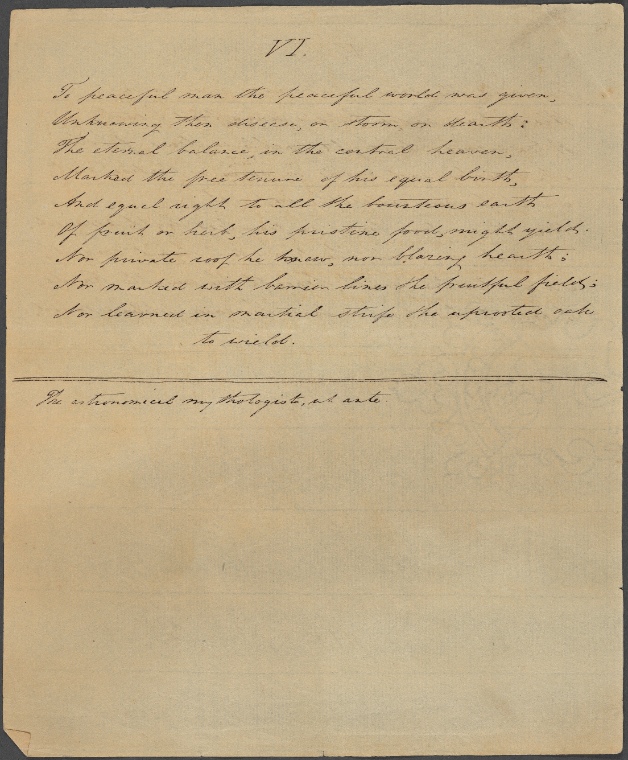 VI.
To peaceful man the peaceful world was given,
Unknowing then disease, or storm or dearth:
The eternal balance, in the central heaven,
Marked the free tenure of his equal birth,
And equal right to all the bounteous earth
Of fruit or herb, his pristine food, might yield.
Nor private roof he knew, nor blazing hearth;
Nor marked with barrier lines the fruitful field;
Nor learned in martial strife the uprooted oak
to wield.
The astronomical mythologists, ut ante